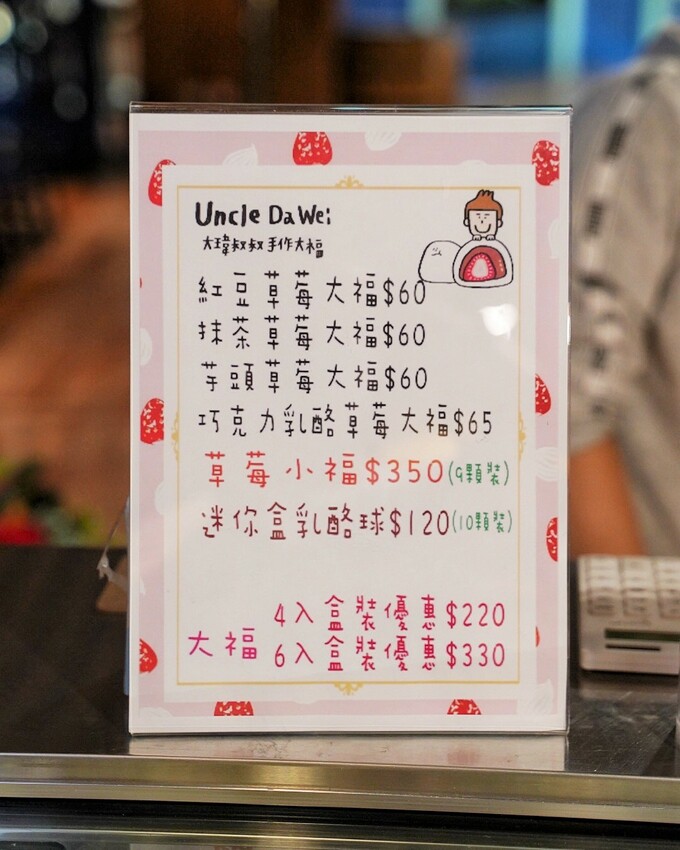 Uncle DaWei
大瑋叔叔手作大福
紅豆草莓大福$60
抹茶草莓大福$60
芋頭草莓大福$60
巧克力乳酪草莓大福$65
草莓小福$350(9顆裝)
迷你盒乳酪球$120(10顆裝)
大福
4入盒裝優惠$220
6入盒裝優惠$330